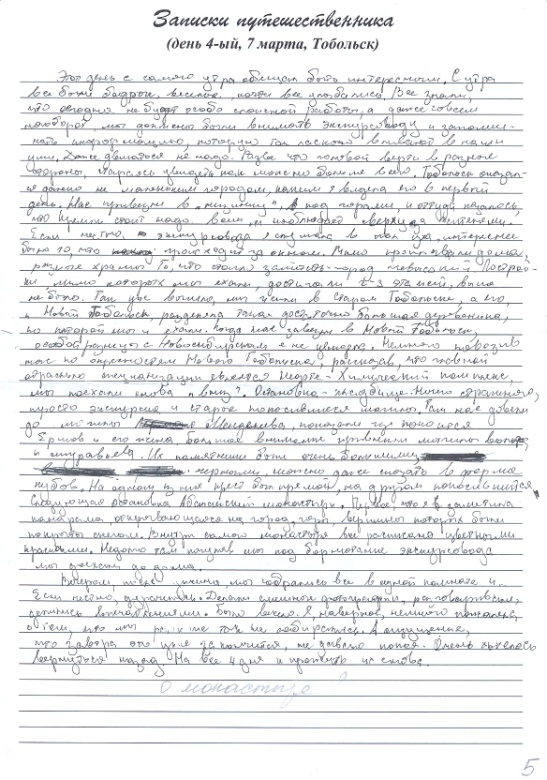 Записки путешественника
(день 4-ый, 7 марта, Тобольск)
Этот день с самого утра обещал быть интересным. С утра
все были бодрые, веселые, почти все улыбались. Все знали,
что сегодня не будет особо сложной работы, а даже совсем
наоборот, мы должны были внимать экскурсоводу и запоми-
нать информацию, которую так ласково вливают в наши
уши. Даже двигаться не надо. Разве что головой верти в разные
стороны, стараясь увидеть как можно больше всего. Тобольск оказал-
ся далеко не маленьким городом, каким я видела его в первый
день. Нас привезли в под горами, и отсюда казалось,
что Кремль стоит надо всем и наблюдает сверху за жителями.
Если честно, экскурсовода я слушала в пол уха, интереснее
было то, что происходит за окном. Мимо проплывали дома,
разные храмы. То, что стало заметно - город невысокий. Построй-
ки, мимо которых мы ехали, достигали 2-3 этажей, выше
не было. Так уже вышло, мы жили в Старом Тобольске, а его,
и Новый Тобольск, разделяла такая достаточно большая
по которой мы и ехали. Когда нас завезли в Новый Тобольск,
особой разницы с Новосибирском я не увидела. Немного повозив
нас по окрестностям Нового Тобольска, рассказав, что главной
специализации является Нефте-Химический комплекс,
мы поехали снова вниз. Остановка - кладбище. Ничего страшного,
просто экскурсия и старые покосившиеся могилы. Там нас довели
до могилы Менделеева, показали где покоился
Ершов и его жена. Больше внимания привлекли могилы
и Муравьева. Их памятники были очень большими
черными, можно даже сказать в форме
кубов. На одном из них крест был прямой, на другом покосившийся.
Следующая остановка Абалакский монастырь. Первое, что я заметила
панорама, открывающаяся на город, горы, вершины которых были
покрыты снегом. Внутри самого монастыря все расписано цветными
красками. Недолго там погуляв мы под бормотание экскурсовода
мы уехали до дома.
Вечером, после ужина, мы собрались все в одной комнате и.
Если честно, дурачились. Делали смешные фотографии, разговаривали,
делились впечатлениями. Было весело. Я, наверное, немного пожалела,
о том, что мы раньше так не собирались. А ощущение,
что завтра это уже закончится, не давало покоя. Очень хотелось
вернуться назад на все 4 дня и прожить их снова.
О монастыре
5